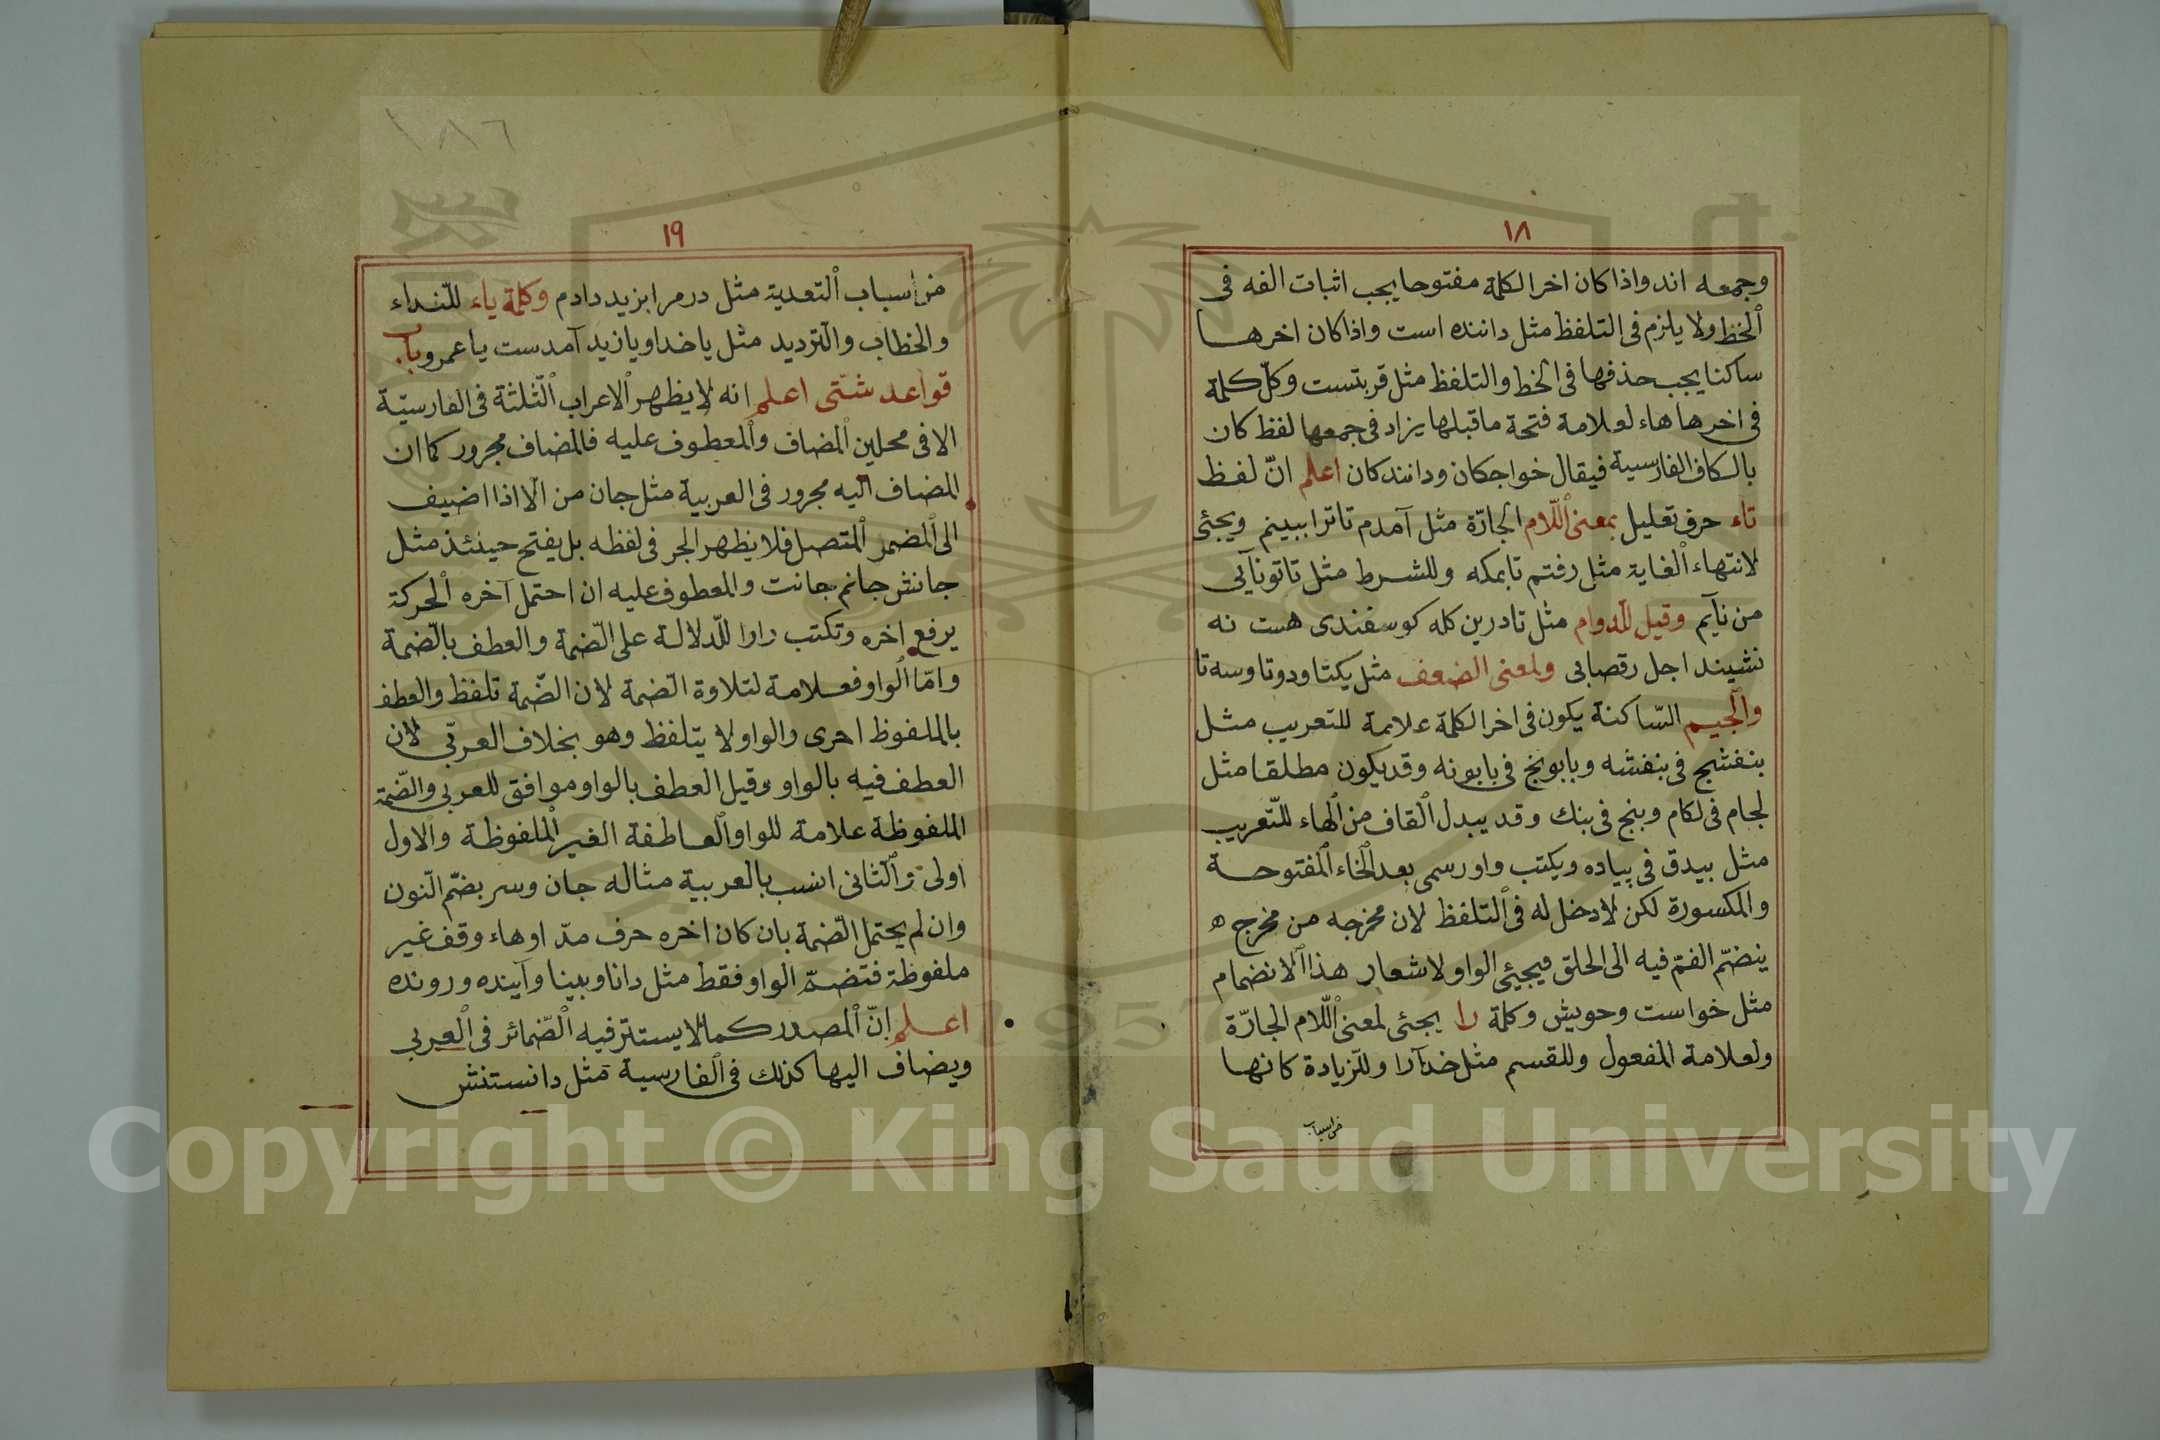 ١٨
وجمعه اند واذا كان اخر الكلمة مفتوحا يجب اثبات الفه فى
ٱلخط ولا يلزم فى التلفظ مثل داننده است واذا كان اخرها
ساكنا يجب حذفها فى الخط والتلفظ مثل قربتست وكلّ كلمة
فى اخرها هاء لعلامة فتحة ماقبلها يزاد فى جمعها لفظ كان
بالكاف الفارسية فيقال خواجكان ودانندكان اعلم انّ لفظ
تاء حرف تعليل بمعنى ٱللّام الجارّة مثل آمدم تا ترا ببينم ويجئى
لانتهاء ٱلغاية مثل رفتم تابمكه وللشرط مثل تا تو نآيى
من نآيم وقيل للدوام مثل تا درين كله كوسفندى هست نه
نشيند اجل رقصابى ولمعنى الضعف مثل يكتا ودوتا وسه تا
والجيم السّاكنة يكون فى اخر الكلمة علامة للتعريب مثل
بنفشج فى بنفشه وبابونج فى بابونه وقد يكون مطلقا مثل
لجام فى لكام وبنج فى بنك وقد يبدل ٱلقاف من ٱلهاء للتّعريب
مثل بيدق فى پياده ويكتب واو رسمى بعد ٱلخاء ٱلمفتوحة
والمكسورة لكن لا دخل له فى ٱلتلفظ لان مخرجه من مخرج ه
ينضمّ الفم فيه الى الحلق فيجيئ الواو لاشعار هذا ٱلانضمام
مثل خواست وخويش وكلمة را يجئى لمعنى ٱللّام الجارّة
ولعلامة المفعول وللقسم مثل خدآرا وللزيادة كانها
من اسباب
١٨٦
١٩
من اسباب ٱلتعدية مثل درمرا بزيد دادم وكلمة ياء للنّداء
والخطاب والترديد مثل يا خدا ويا زيد آمدست يا عمرو باب
قواعد شتّى اعلم انه لا يظهر ٱلاعراب ٱلثلثة فى الفارسيّة
الا فى محلين ٱلمضاف وٱلمعطوف عليه فالمضاف مجرور كما ان
المضاف اليه مجرور فى العربية مثل جان من الّا اذا اضيف
الى ٱلمضمر ٱلمتصل فلا يظهر الجر فى لفظه بل يفتح حينئذ مثل
جانش جانم جانت والمعطوف عليه ان احتمل آخره ٱلحركة
يرفع اخره وتكتب واوا للدّلالة على الضّمة والعطف بالضّمة
وامّا ٱلواو فعلامة لتلاوة الضمة لان الضّمة تلفظ والعطف
بالملفوظ احرى والواو لا يتلفظ وهو بخلاف العربّى لان
العطف فيه بالواو وقيل العطف بالواو موافق للعربى والضّمّة
الملفوظة علامة للواو ٱلعاطفة الغير ٱلملفوظة والاول
اولى وٱلثانى انسب بالعربية مثاله جان وسر بضمّ النّون
وان لم يحتمل الضّمة بان كان اخره حرف مدّ او هاء وقف غير
ملفوظة فتضمّ الواو فقط مثل دانا وبينا وآينده ورونده
اعلم انّ ٱلمصدر كما لا يستتر فيه ٱلضّمائر فى ٱلعربى
ويضاف اليها كذلك فى ٱلفارسية مثل دانستنش